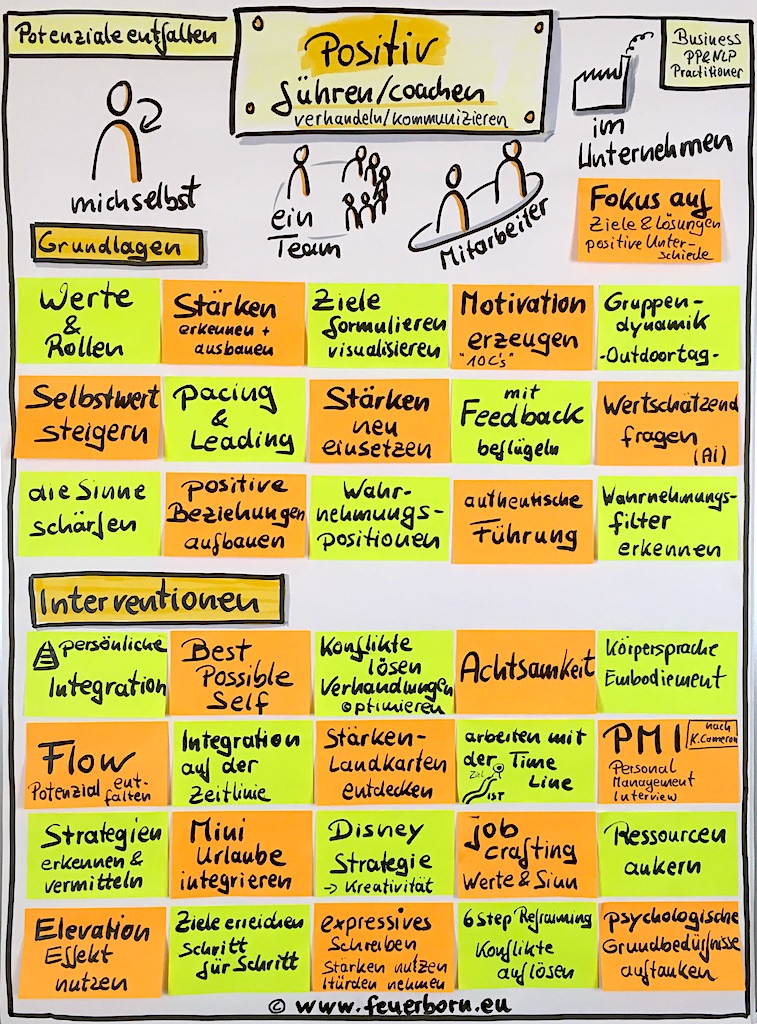 Potenziale entfalten
Positiv
führen/coachen
verhandeln/kommunizieren
Business
PP & NLP
Practitioner
mich selbst
ein
Team
Mitarbeiter
im
Unternehmen
Fokus auf
Ziele & Lösungen
positive Unter-
schiede
Grundlagen
Werte
&
Rollen
Stärken
erkennen +
ausbauen
Ziele
formulieren
visualisieren
Motivation
erzeugen
"10C's"
Gruppen-
dynamik
-Outdoortag-
Selbstwert
steigern
pacing
&
Leading
Stärken
neu
einsetzen
mit
Feedback
beflügeln
Wertschätzend
fragen
(Ai)
die Sinne
schärfen
positive
Beziehungen
aufbauen
Wahr-
nehmungs-
positionen
authentische
Führung
Wahrnehmungs-
filter
erkennen
Interventionen
persönliche
Integration
Best
Possible
Self
Konflikte
lösen
Verhandlungen
optimieren
Achtsamkeit
Körpersprache
Embodiement
Flow
Potenzial ent-
falten
Integration
auf der
Zeitlinie
Stärken-
Landkarten
entdecken
arbeiten mit
der Time
Line
Ziel
IST
PMI
nach
K. Cameron
Personal
Management
Interview
Strategien
erkennen &
vermitteln
Mini
Urlaube
integrieren
Disney
Strategie
→ Kreativität
job
crafting
Werte & Sinn
Ressourcen
ankern
Elevation
Effekt
nutzen
Ziele erreichen
Schritt
für Schritt
expressives
Schreiben
Stärken nutzen
Hürden nehmen
6 Step Reframing
Konflikte
auflösen
psychologische
Grundbedürfnisse
auftanken
© www.feuerborn.eu